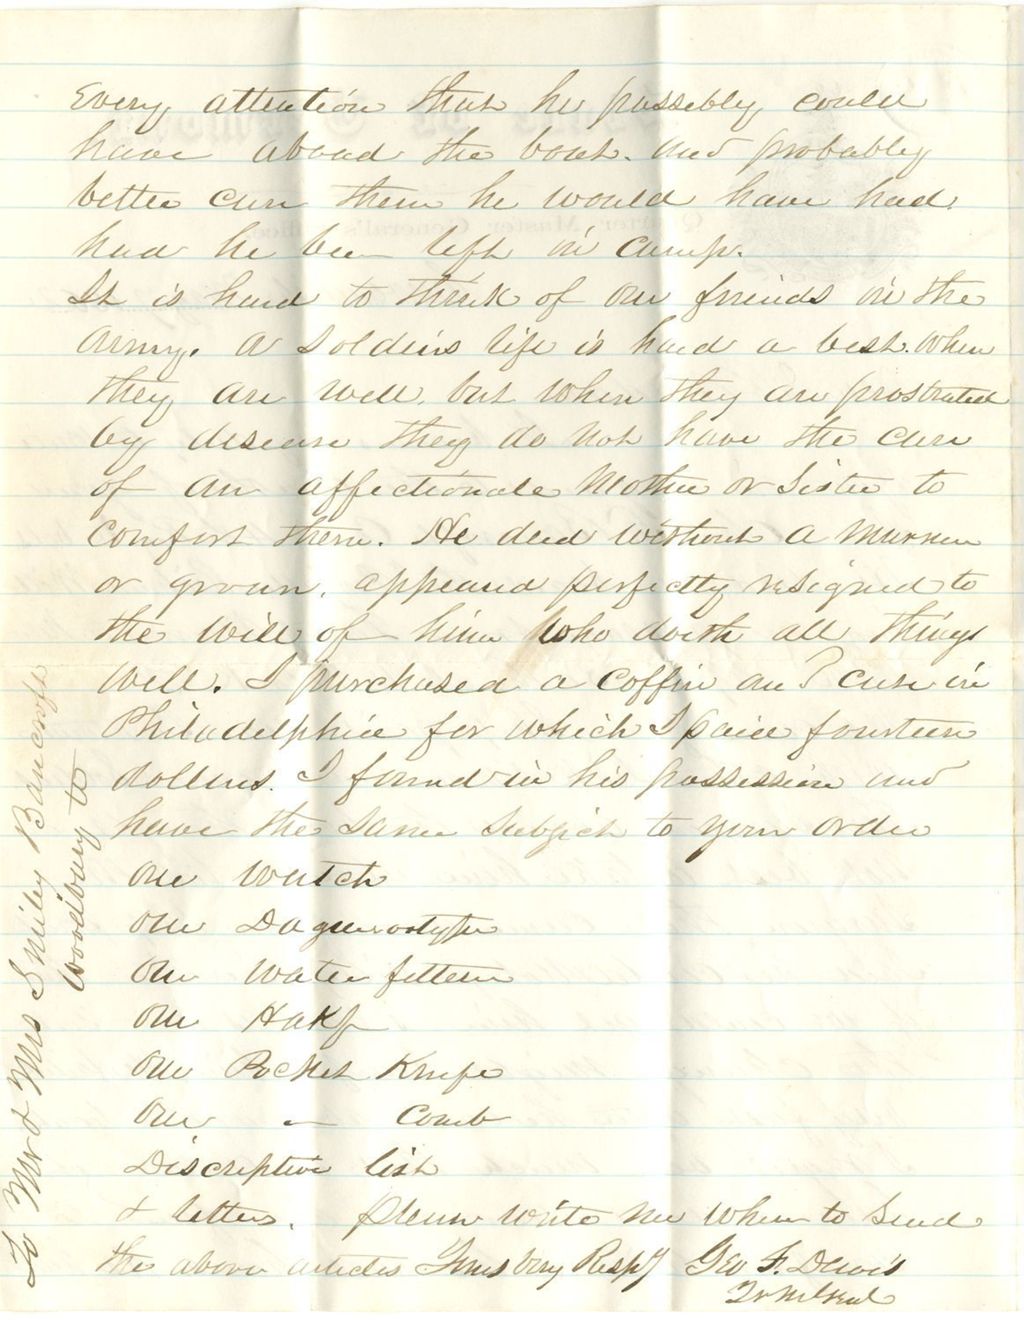 Every attention that he possebly could
have aboad the boat. and probably
better care then he would have had,
had he been left in camp.
It is hard to think of our friends in the
Army. a Soldiers life is hard a best. When
they are well, but when they are prostrated
by disease they do not have the care
of an affectionate Mother or Sister to
comfort them. He died without a murmur
or groan, appeared perfectly resigned to
the will of him who doeth all things
well. I purchased a coffin and case in
Philadelphia for which I paid fourteen
dollars. I found in his possession and
have the same subject to your order
One Watch
One Daguerrotype
One Water filterer
One Hakf
One Pocket Knife
One " Comb
Discriptive list
& letters. Please write me when to send
the above articles Yours Very Respy Geo F. Davis
To Mr & Mrs Smiley Bancroft
Woodbury Vt